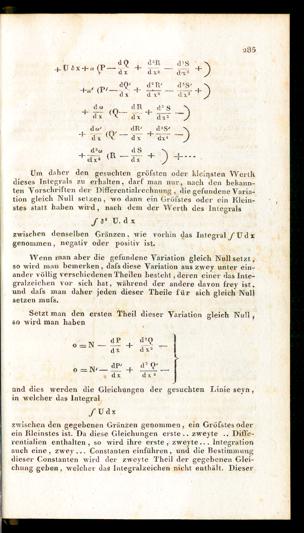 285
+ U δ x + α (P — dQ/dx + d²R/dx² — d³S/dx³ + )
+ α' (P' — dQ'/dx + d²R'/dx² — d³S'/dx³ + )
+ dα/dx (Q — dR/dx + d²S/dx² — )
+ dα'/dx (Q' — dR'/dx + d²S'/dx² — )
+ d²α/dx² (R — dS/dx + ) + ....
Um daher den gesuchten gröfsten oder kleinsten Werth
dieses Integrals zu erhalten, darf man nur, nach den bekann-
ten Vorschriften der Differentialrechnung, die gefundene Varia-
tion gleich Null setzen, wo dann ein Gröfstes oder ein Klein-
stes statt haben wird, nach dem der Werth des Integrals
∫ δ² U. d x
zwischen denselben Gränzen, wie vorhin das Integral ∫ U d x
genommen, negativ oder positiv ist.
Wenn man aber die gefundene Variation gleich Null setzt,
so wird man bemerken, dafs diese Variation aus zwey unter ein-
ander völlig verschiedenen Theilen besteht, deren einer das Inte-
gralzeichen vor sich hat, während der andere davon frey ist,
und dafs man daher jeden dieser Theile für sich gleich Null
setzen mufs.
Setzt man den ersten Theil dieser Variation gleich Null,
so wird man haben
0 = N — dP/dx + d²Q/dx² —
0 = N' — dP'/dx + d²Q'/dx² —
und dies werden die Gleichungen der gesuchten Linie seyn,
in welcher das Integral
∫ U d x
zwischen den gegebenen Gränzen genommen, ein Gröfstes oder
ein Kleinstes ist. Da diese Gleichungen erste .. zweyte .. Diffe-
rentialien enthalten, so wird ihre erste, zweyte ... Integration
auch eine, zwey ... Constanten einführen, und die Bestimmung
dieser Constanten wird der zweyte Theil der gegebenen Glei-
chung geben, welcher das Integralzeichen nicht enthält. Dieser